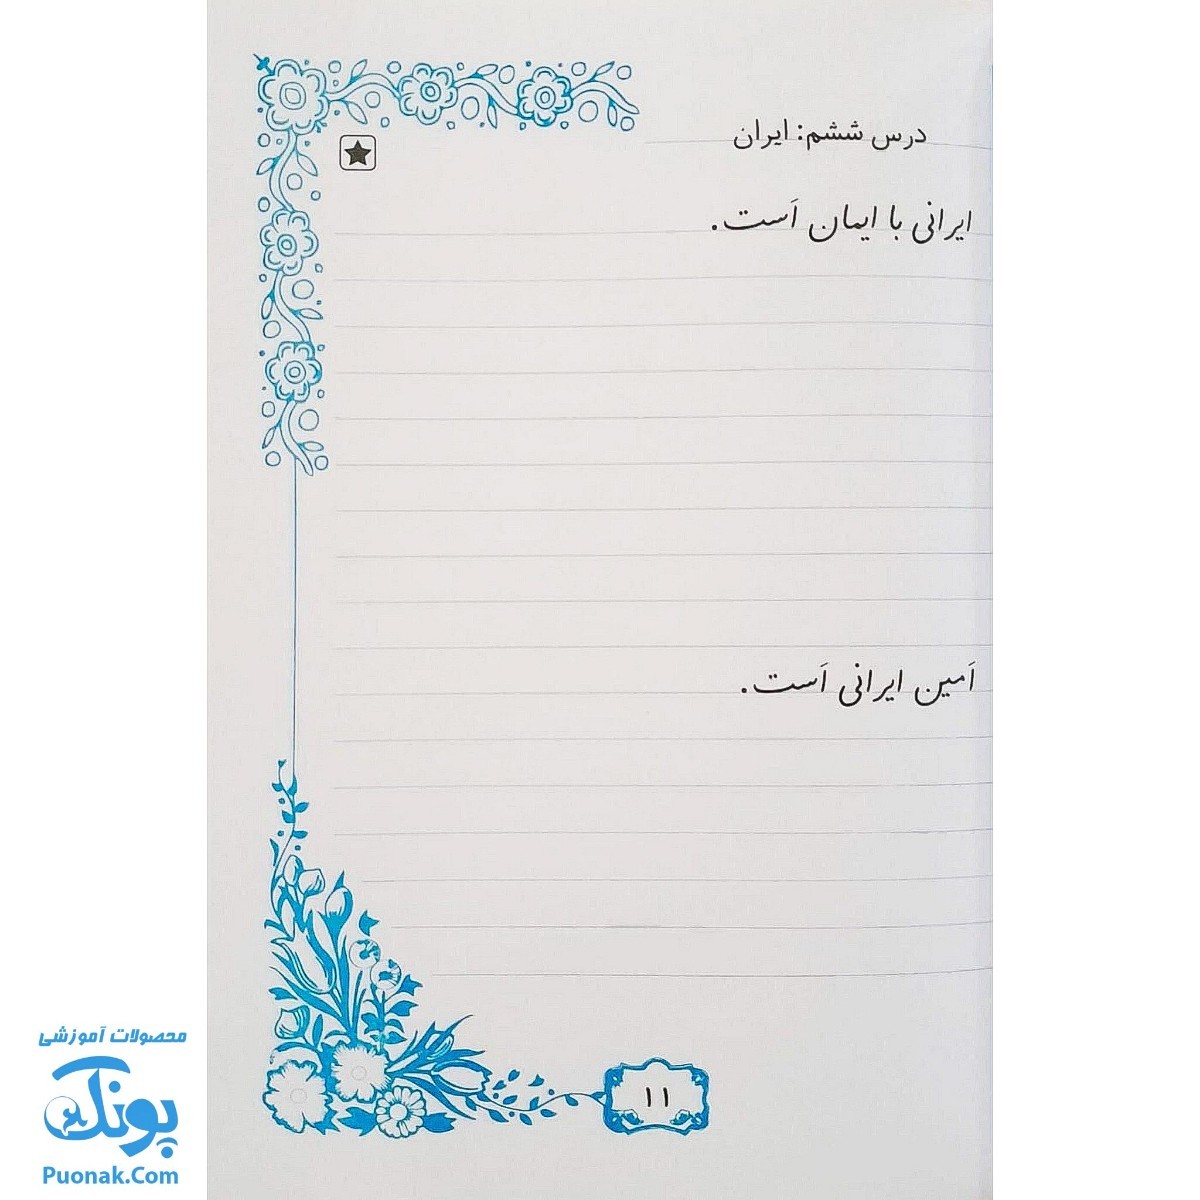 درس ششم: ایران
ایرانی با ایمان اَست.
اَمین ایرانی اَست.
۱۱
محصولات آموزشی
پونک
Puonak.Com